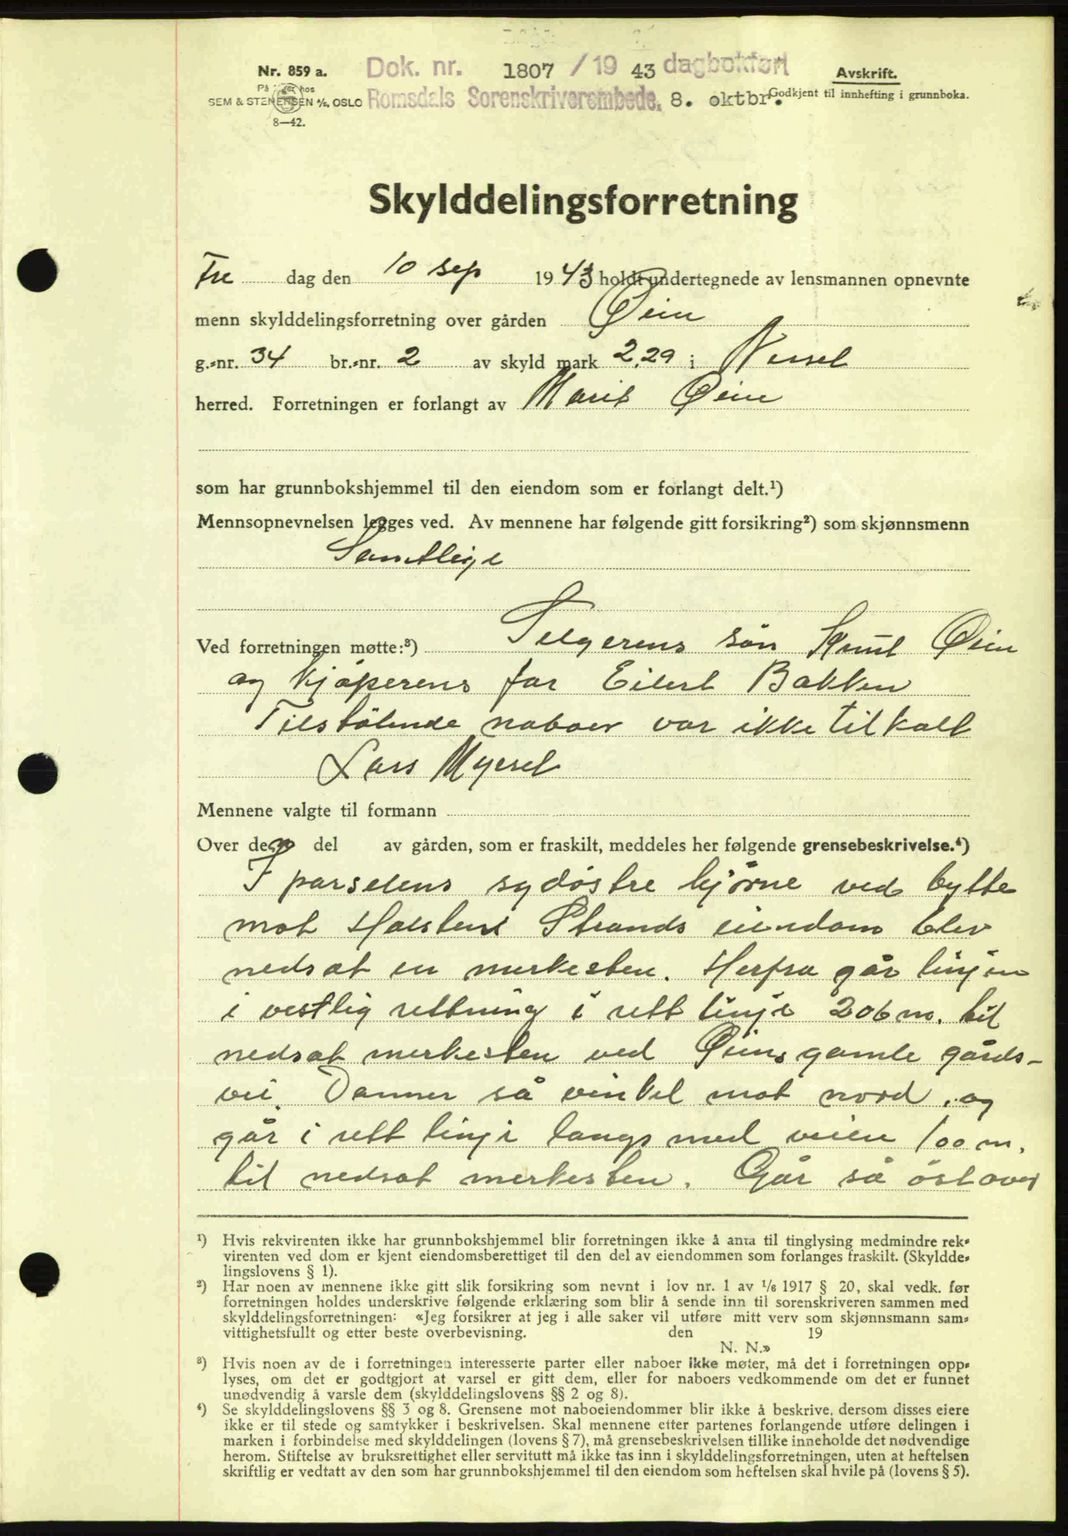 Nr. 859 a.
På lager hos
SEM & STENERSEN A/S, OSLO
8—42.
Dok. nr. 1807 / 19 43 dagbokført
Romsdals Sorenskriverembede, 8. oktbr.
Avskrift.
Godkjent til innhefting i grunnboka.
Skylddelingsforretning
Fre dag den 10 sep 1943 holdt undertegnede av lensmannen opnevnte
menn skylddelingsforretning over gården Øien
g.-nr. 34 br.-nr. 2 av skyld mark 2,29 i Nesset
herred. Forretningen er forlangt av Marit Øien
som har grunnbokshjemmel til den eiendom som er forlangt delt.¹)
Mennsopnevnelsen legges ved. Av mennene har følgende gitt forsikring²) som skjønnsmenn
Samtlige
Ved forretningen møtte:³) Selgerens søn Knut Øien
og kjøperens far Eilert Bakken
Tilstøtende naboer var ikke tilkalt
Lars Myerset
Mennene valgte til formann
Over den del av gården, som er fraskilt, meddeles her følgende grensebeskrivelse.⁴)
I parselens sydøstre hjørne ved bytte
mot Halsten Strands eiendom blev
nedsat en merkesten. Herfra går linjen
i vestlig rettning i rett linje 206 m. til
nedsat merkesten ved Øiens gamle gårds-
vei. Danner så vinkel mot nord, og
går i rett linje langs med veien 100 m.
til nedsat merkesten. Går så østover
¹) Hvis rekvirenten ikke har grunnbokshjemmel blir forretningen ikke å anta til tinglysing medmindre rek-
virenten ved dom er kjent eiendomsberettiget til den del av eiendommen som forlanges fraskilt. (Skyldde-
lingslovens § 1).
²) Har noen av mennene ikke gitt slik forsikring som nevnt i lov nr. 1 av 1/6 1917 § 20, skal vedk. før
forretningen holdes underskrive følgende erklæring som blir å sende inn til sorenskriveren sammen med
skylddelingsforretningen: «Jeg forsikrer at jeg i alle saker vil utføre mitt verv som skjønnsmann sam-
vittighetsfullt og etter beste overbevisning. den 19
N. N.»
³) Hvis noen av de i forretningen interesserte parter eller naboer ikke møter, må det i forretningen opp-
lyses, om det er godtgjort at varsel er gitt dem, eller for naboers vedkommende om det er funnet
unødvendig å varsle dem (skylddelingslovens §§ 2 og 8).
⁴) Se skylddelingslovens §§ 3 og 8. Grensene mot naboeiendommer blir ikke å beskrive, dersom disses eiere
ikke er til stede og samtykker i beskrivelsen. Skal mennene etter partenes forlangende utføre delingen i
marken i forbindelse med skylddelingen (lovens § 7), må grensebeskrivelsen tillike inneholde det nødvendige
herom. Stiftelse av bruksrettighet eller servitutt må ikke tas inn i skylddelingsforretningen, uten at heftelsen
skriftlig er vedtatt av den som har grunnbokshjemmel til den eiendom som heftelsen skal hvile på (lovens § 5).